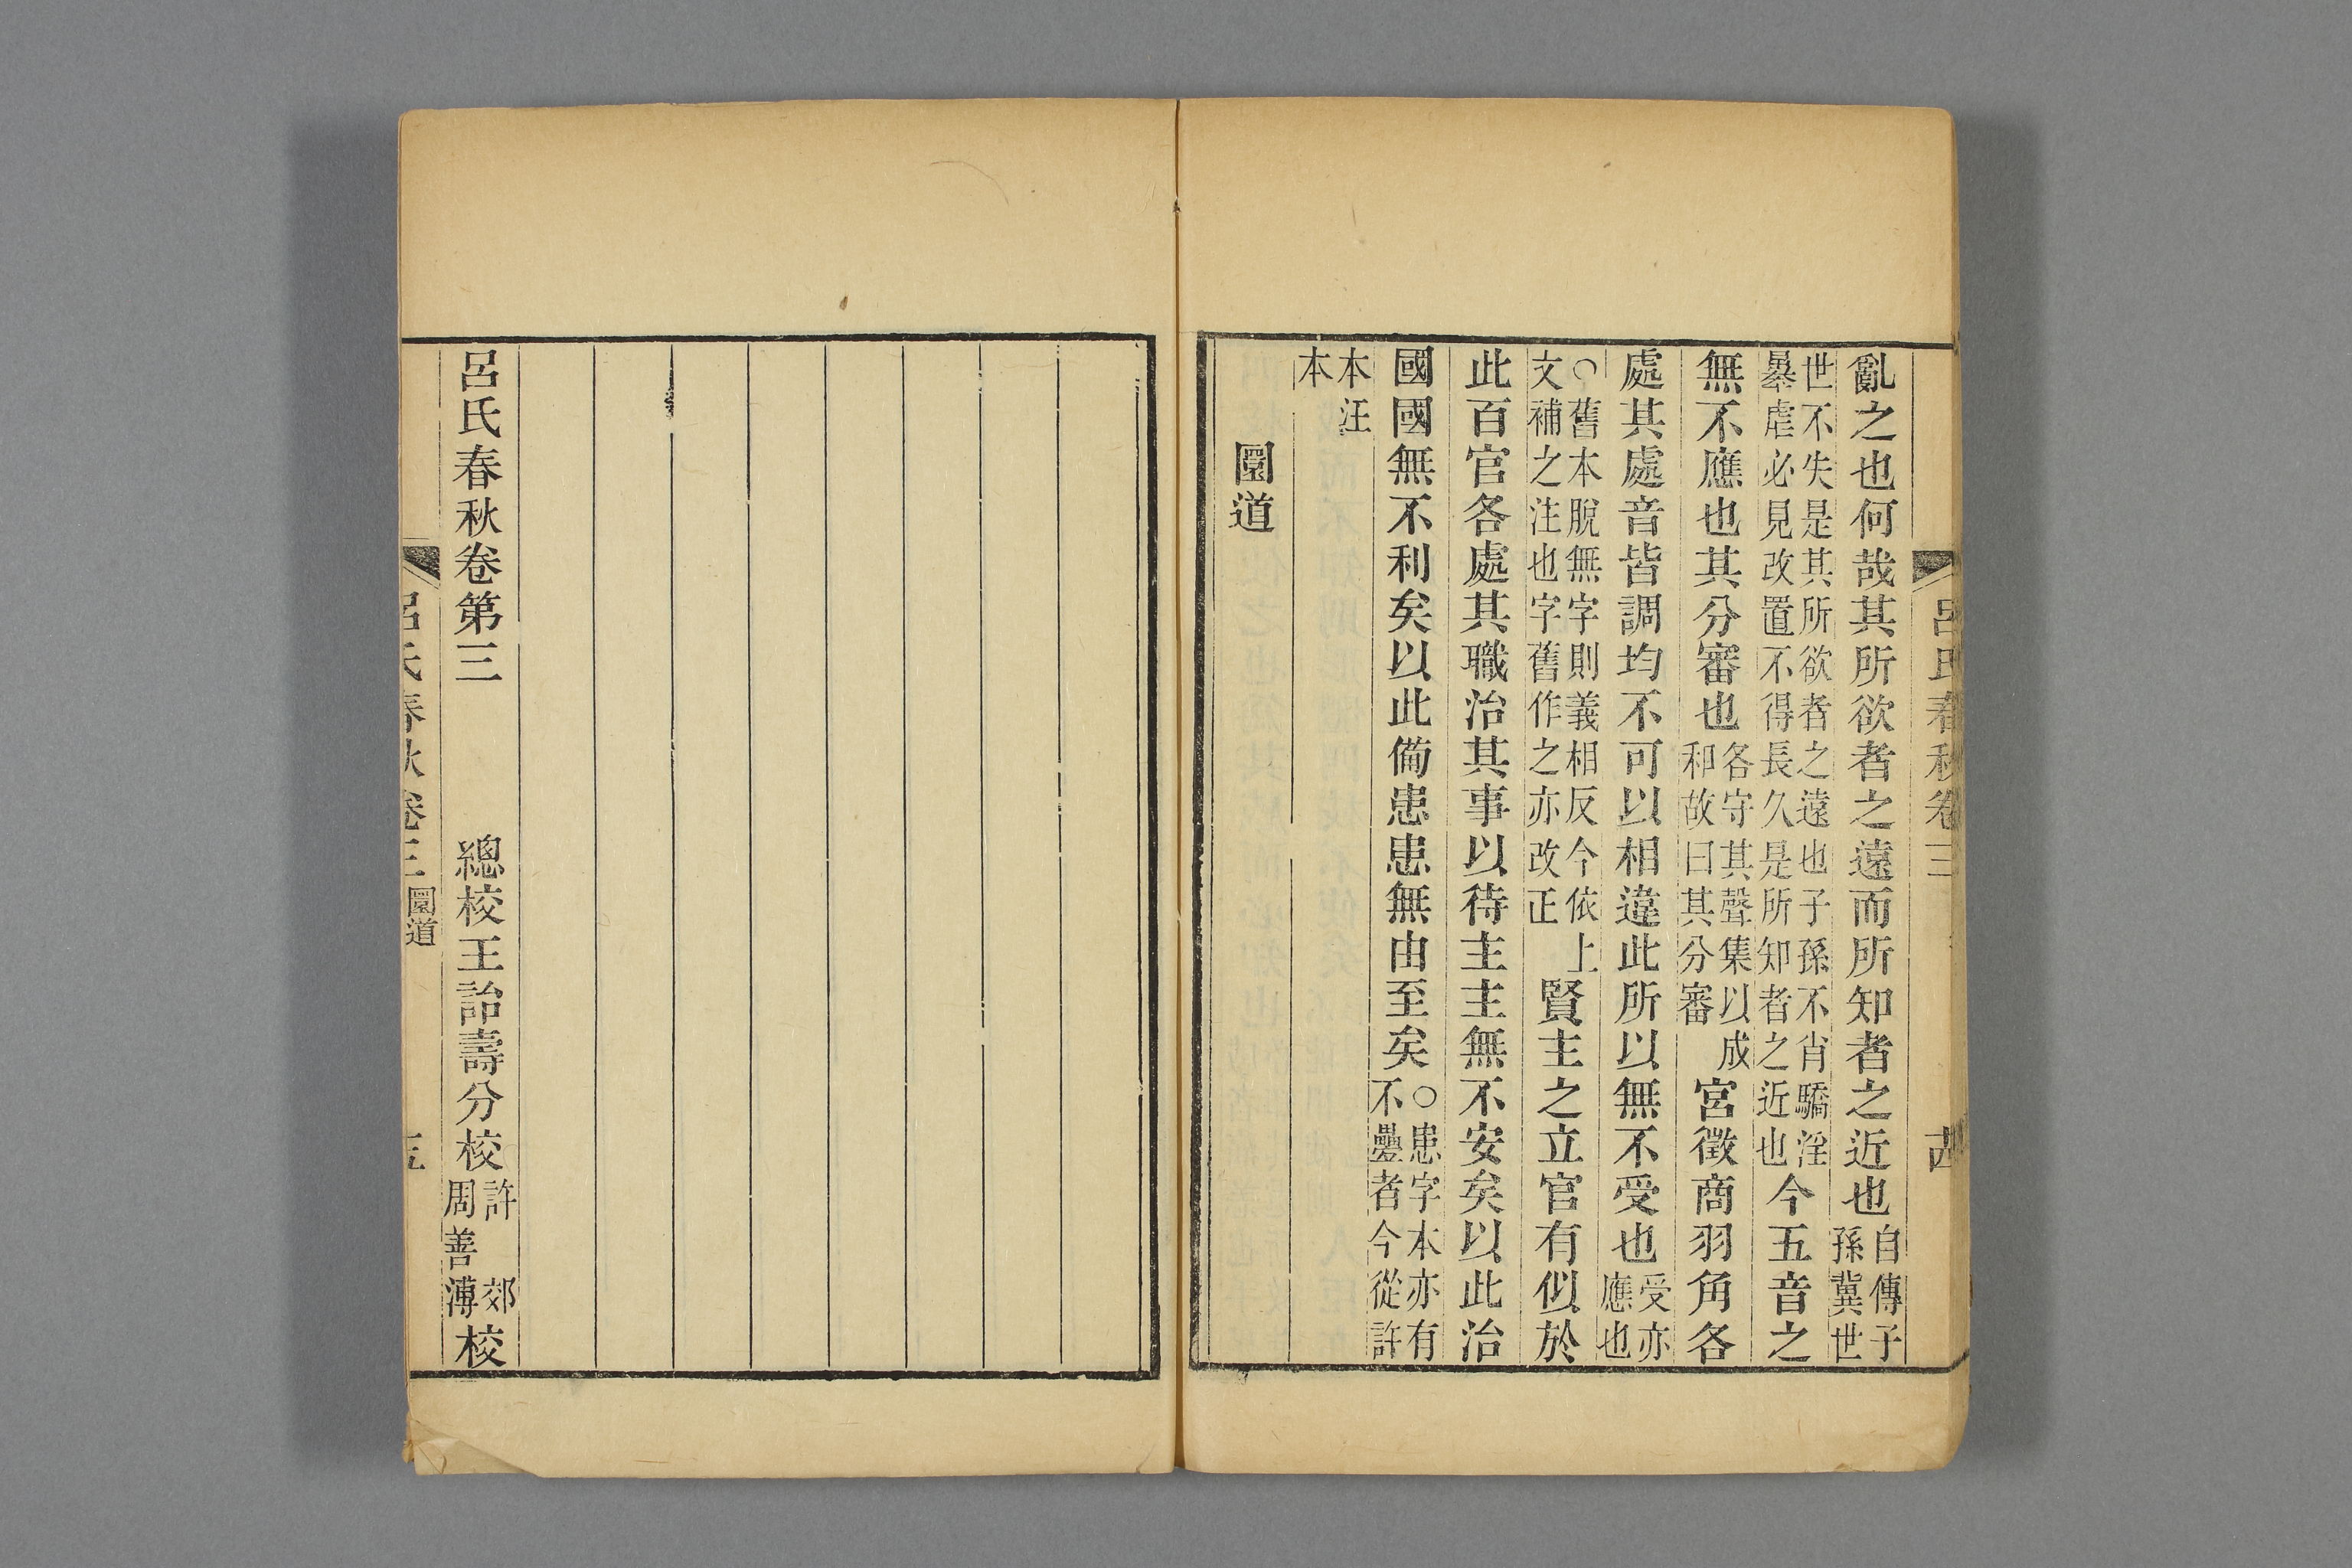 呂氏春秋卷三
亂之也何哉其所欲者之遠而所知者之近也自傳子孫冀世
世不失是其所欲者之遠也子孫不肖驕淫暴虐必見改置不得長久是所知者之近也今五音之
無不應也其分審也各守其聲集以成和故曰其分審宮徵商羽角各
處其處音皆調均不可以相違此所以無不受也受亦應也
○舊本脫無字則義相反今依上文補之注也字舊作之亦改正賢主之立官有似於
此百官各處其職治其事以待主主無不安矣以此治
國國無不利矣以此備患患無由至矣○患字本亦有不疊者今從許
本汪本
圜道
呂氏春秋卷第三 總校王詒壽分校許郊周善溥校
呂氏春秋卷三 圜道